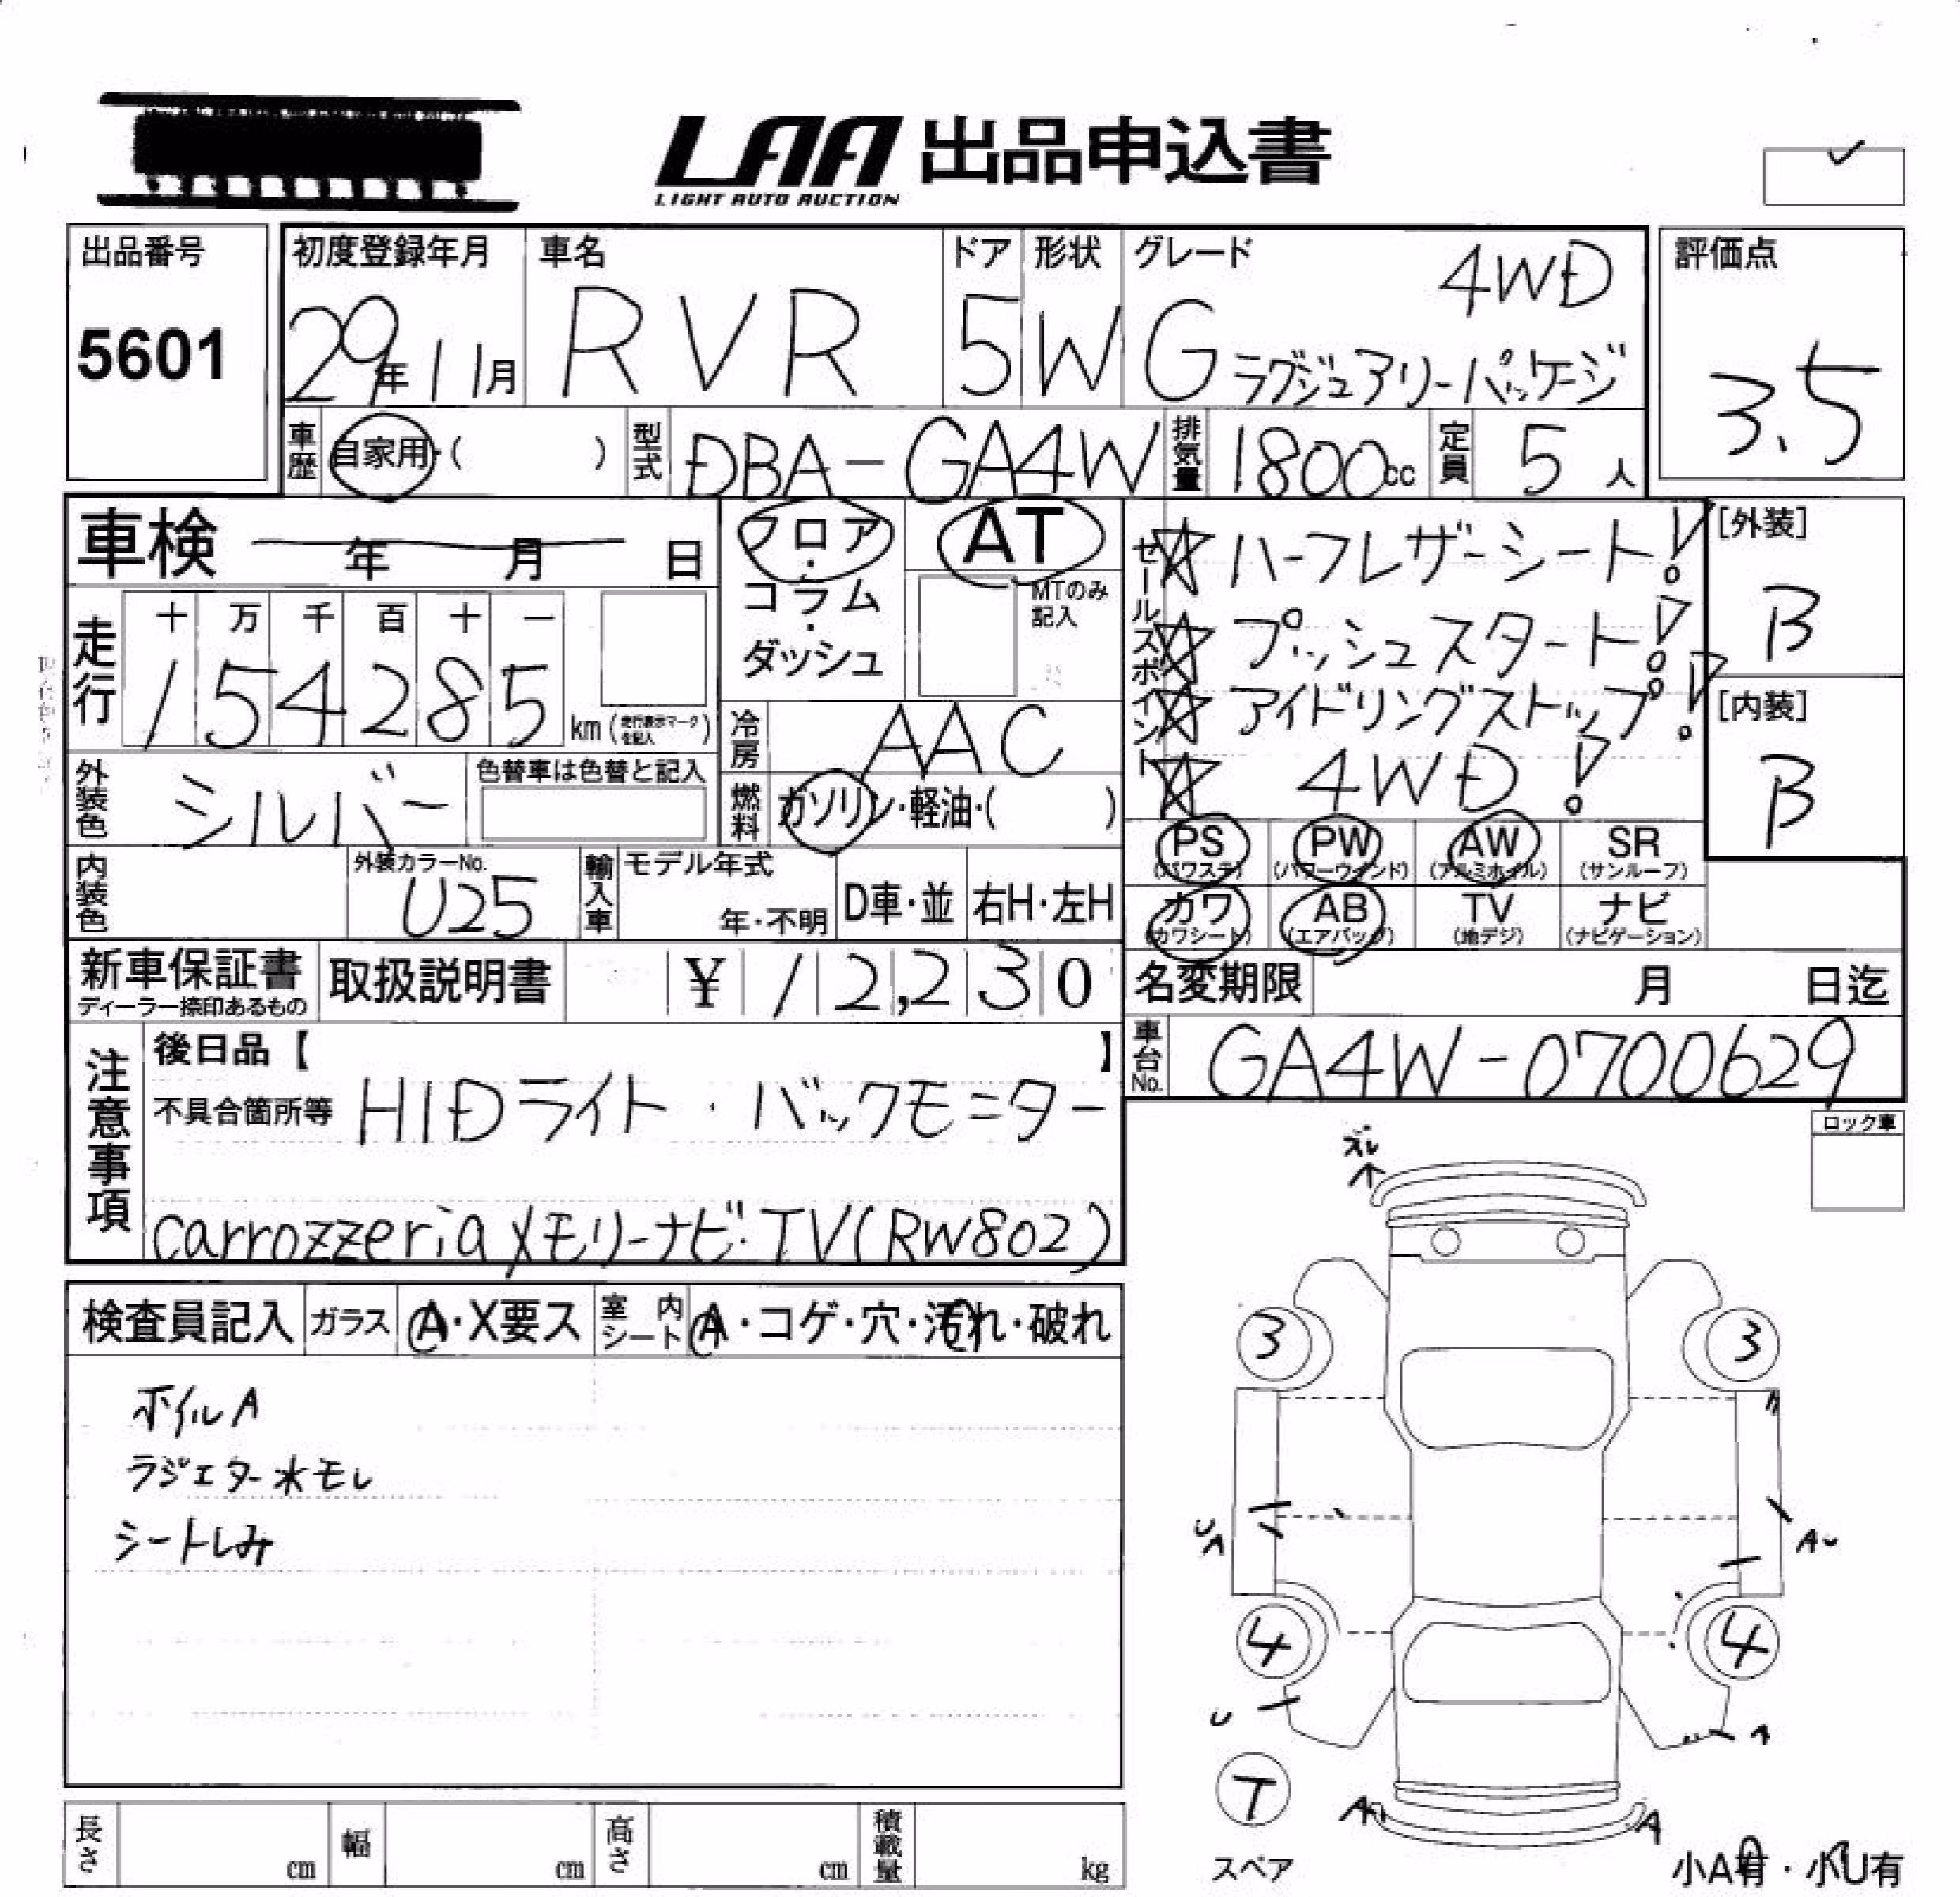 LAA 出品申込書
LIGHT AUTO AUCTION
出品番号
5601
初度登録年月
29年11月
車名
RVR
ドア
5
形状
W
グレード
4WD
G ラグジュアリーパッケージ
評価点
3.5
車歴
自家用・( )
型式
DBA-GA4W
排気量
1800cc
定員
5人
車検 年 月 日
フロア・コラム・ダッシュ
AT
MTのみ記入
走行
十 万 千 百 十 一
154285
km(走行表示マークを記入)
冷房
AAC
燃料
ガソリン・軽油・( )
外装色
シルバー
色替車は色替と記入
内装色
外装カラーNo.
U25
輸入車
モデル年式
年・不明
D車・並
右H・左H
セールスポイント
☆ハーフレザーシート!
☆プッシュスタート!
☆アイドリングストップ!
☆4WD!
[外装]
B
[内装]
B
PS (パワステ)
PW (パワーウインド)
AW (アルミホイル)
SR (サンルーフ)
カワ (カワシート)
AB (エアバッグ)
TV (地デジ)
ナビ (ナビゲーション)
新車保証書
ディーラー捺印あるもの
取扱説明書
¥12,230
名変期限 月 日迄
車台No.
GA4W-0700629
注意事項
後日品【 】
不具合箇所等 HIDライト・バックモニター
carrozzeriaメモリーナビ・TV(RW802)
ロック車
検査員記入
ガラス
A・X要ス
室内シート
A・コゲ・穴・汚れ・破れ
ホイルA
ラジエター水モレ
シートしみ
ズレ
3
3
UA
AU
4
4
U
A
T
スペア
A
A
小A有・小U有
長さ cm
幅 cm
高さ cm
積載量 kg